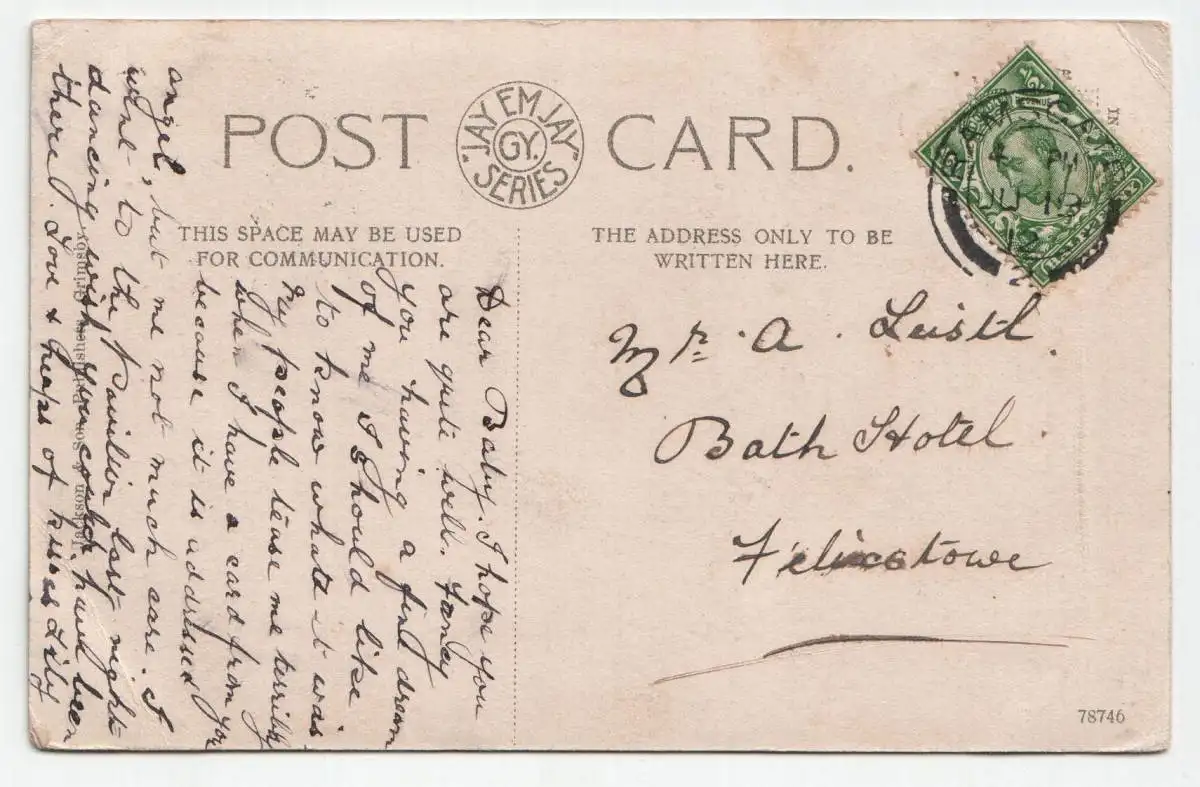 POST CARD.
"JAY EM JAY" SERIES
GY.
THIS SPACE MAY BE USED
FOR COMMUNICATION.
THE ADDRESS ONLY TO BE
WRITTEN HERE.
RAMSGATE
4 PM
JU 13
12
2
HALFPENNY
Mr. A. Leistl.
Bath Hotel.
Felixstowe
78746
Dear Baby. I hope you
are quite well. Fancy
you having a fine dream
of me I should like
to know what it was
My people tease me terribly
when I have a card from you
because it is addressed
angel, but me not much care. I
went to the Pavilion last night
dancing wish you could have been
there. Love & heaps of kisses Lily
Jackson & Son, Publishers, Grimsby